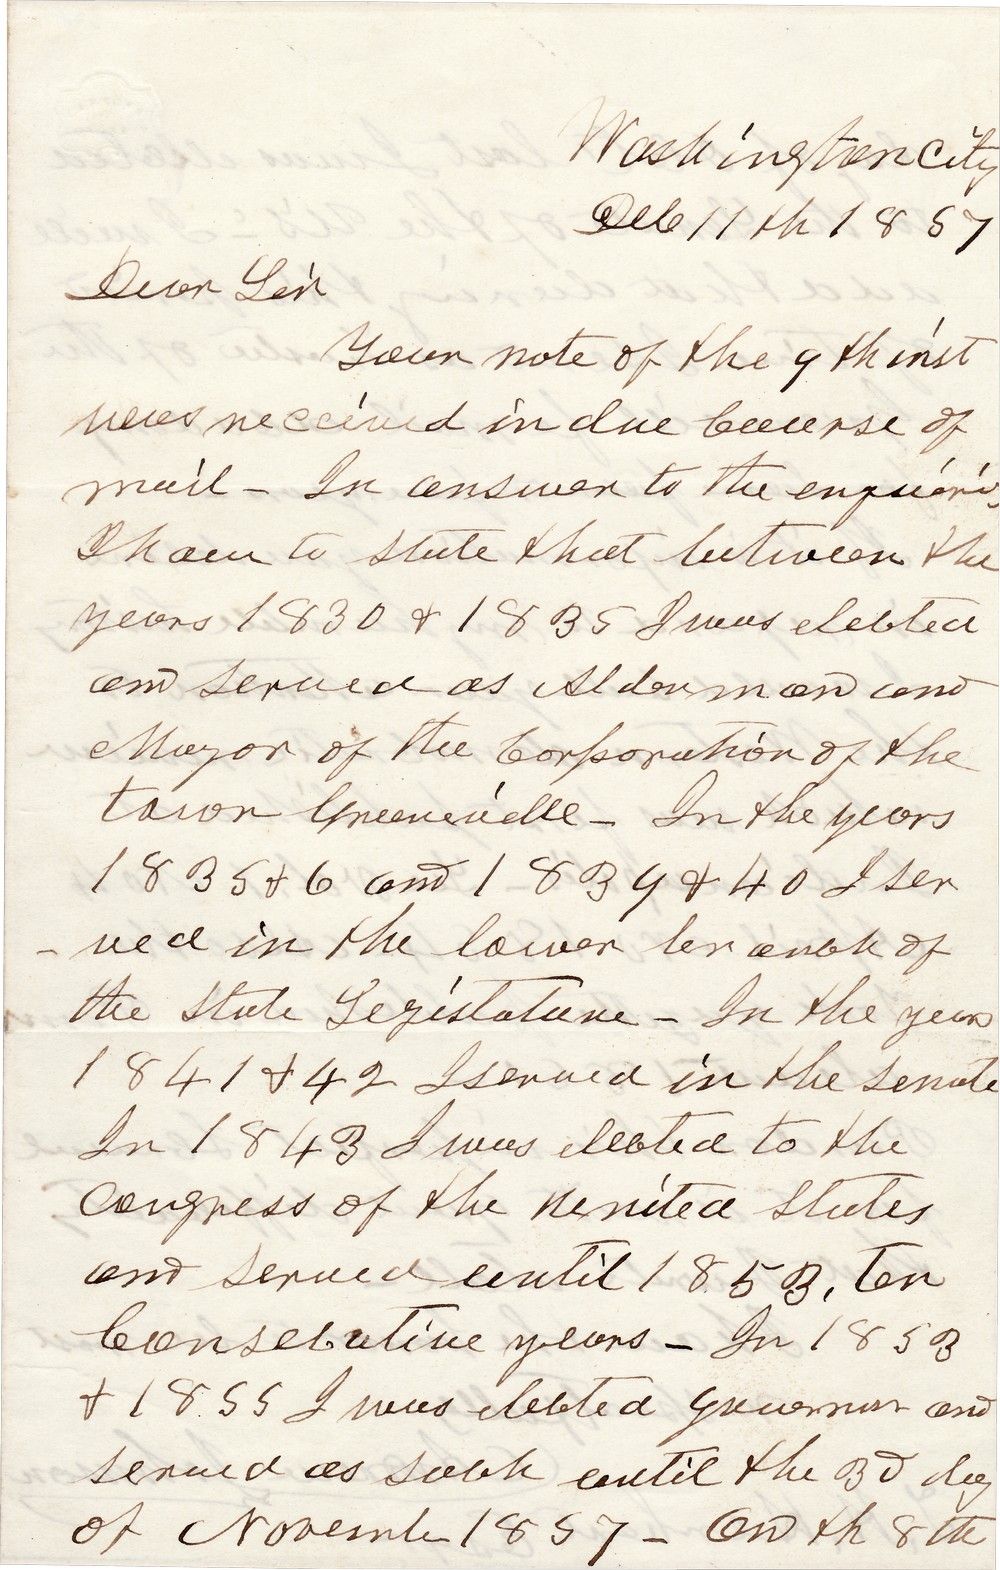 Washington City
Dec 11th 1857
Dear Sir
Your note of the 9th inst
was received in due Course of
mail – In answer to the
I have to state that between the
years 1830 & 1835 I was elected
and served as Alderman and
Mayor of the Corporation of the
town Greeneville – In the years
1835 & 6 and 1839 & 40 I ser
– ved in the lower branch of
the State Legislature – In the years
1841 & 42 I served in the Senate
In 1843 I was elected to the
Congress of the United States
and served until 1853, ten
Consecutive years – In 1853
& 1855 I was elected Governor and
served as such until the 3d day
of November 1857 – On th 8th